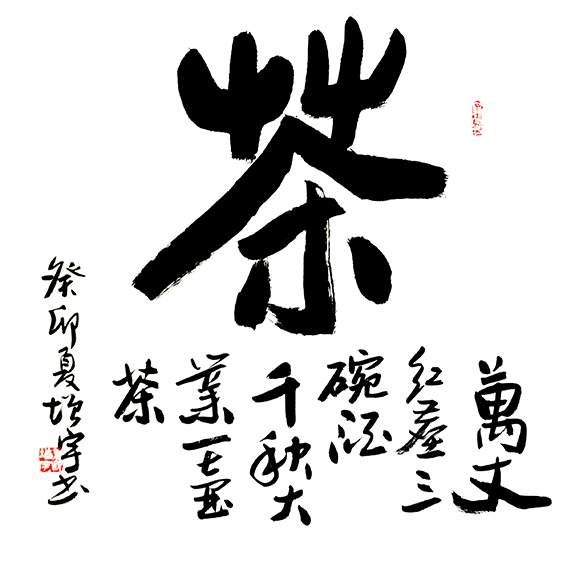 茶
萬丈
红塵三
碗酒
千秋大
業一壺
茶
癸卯夏增宇书